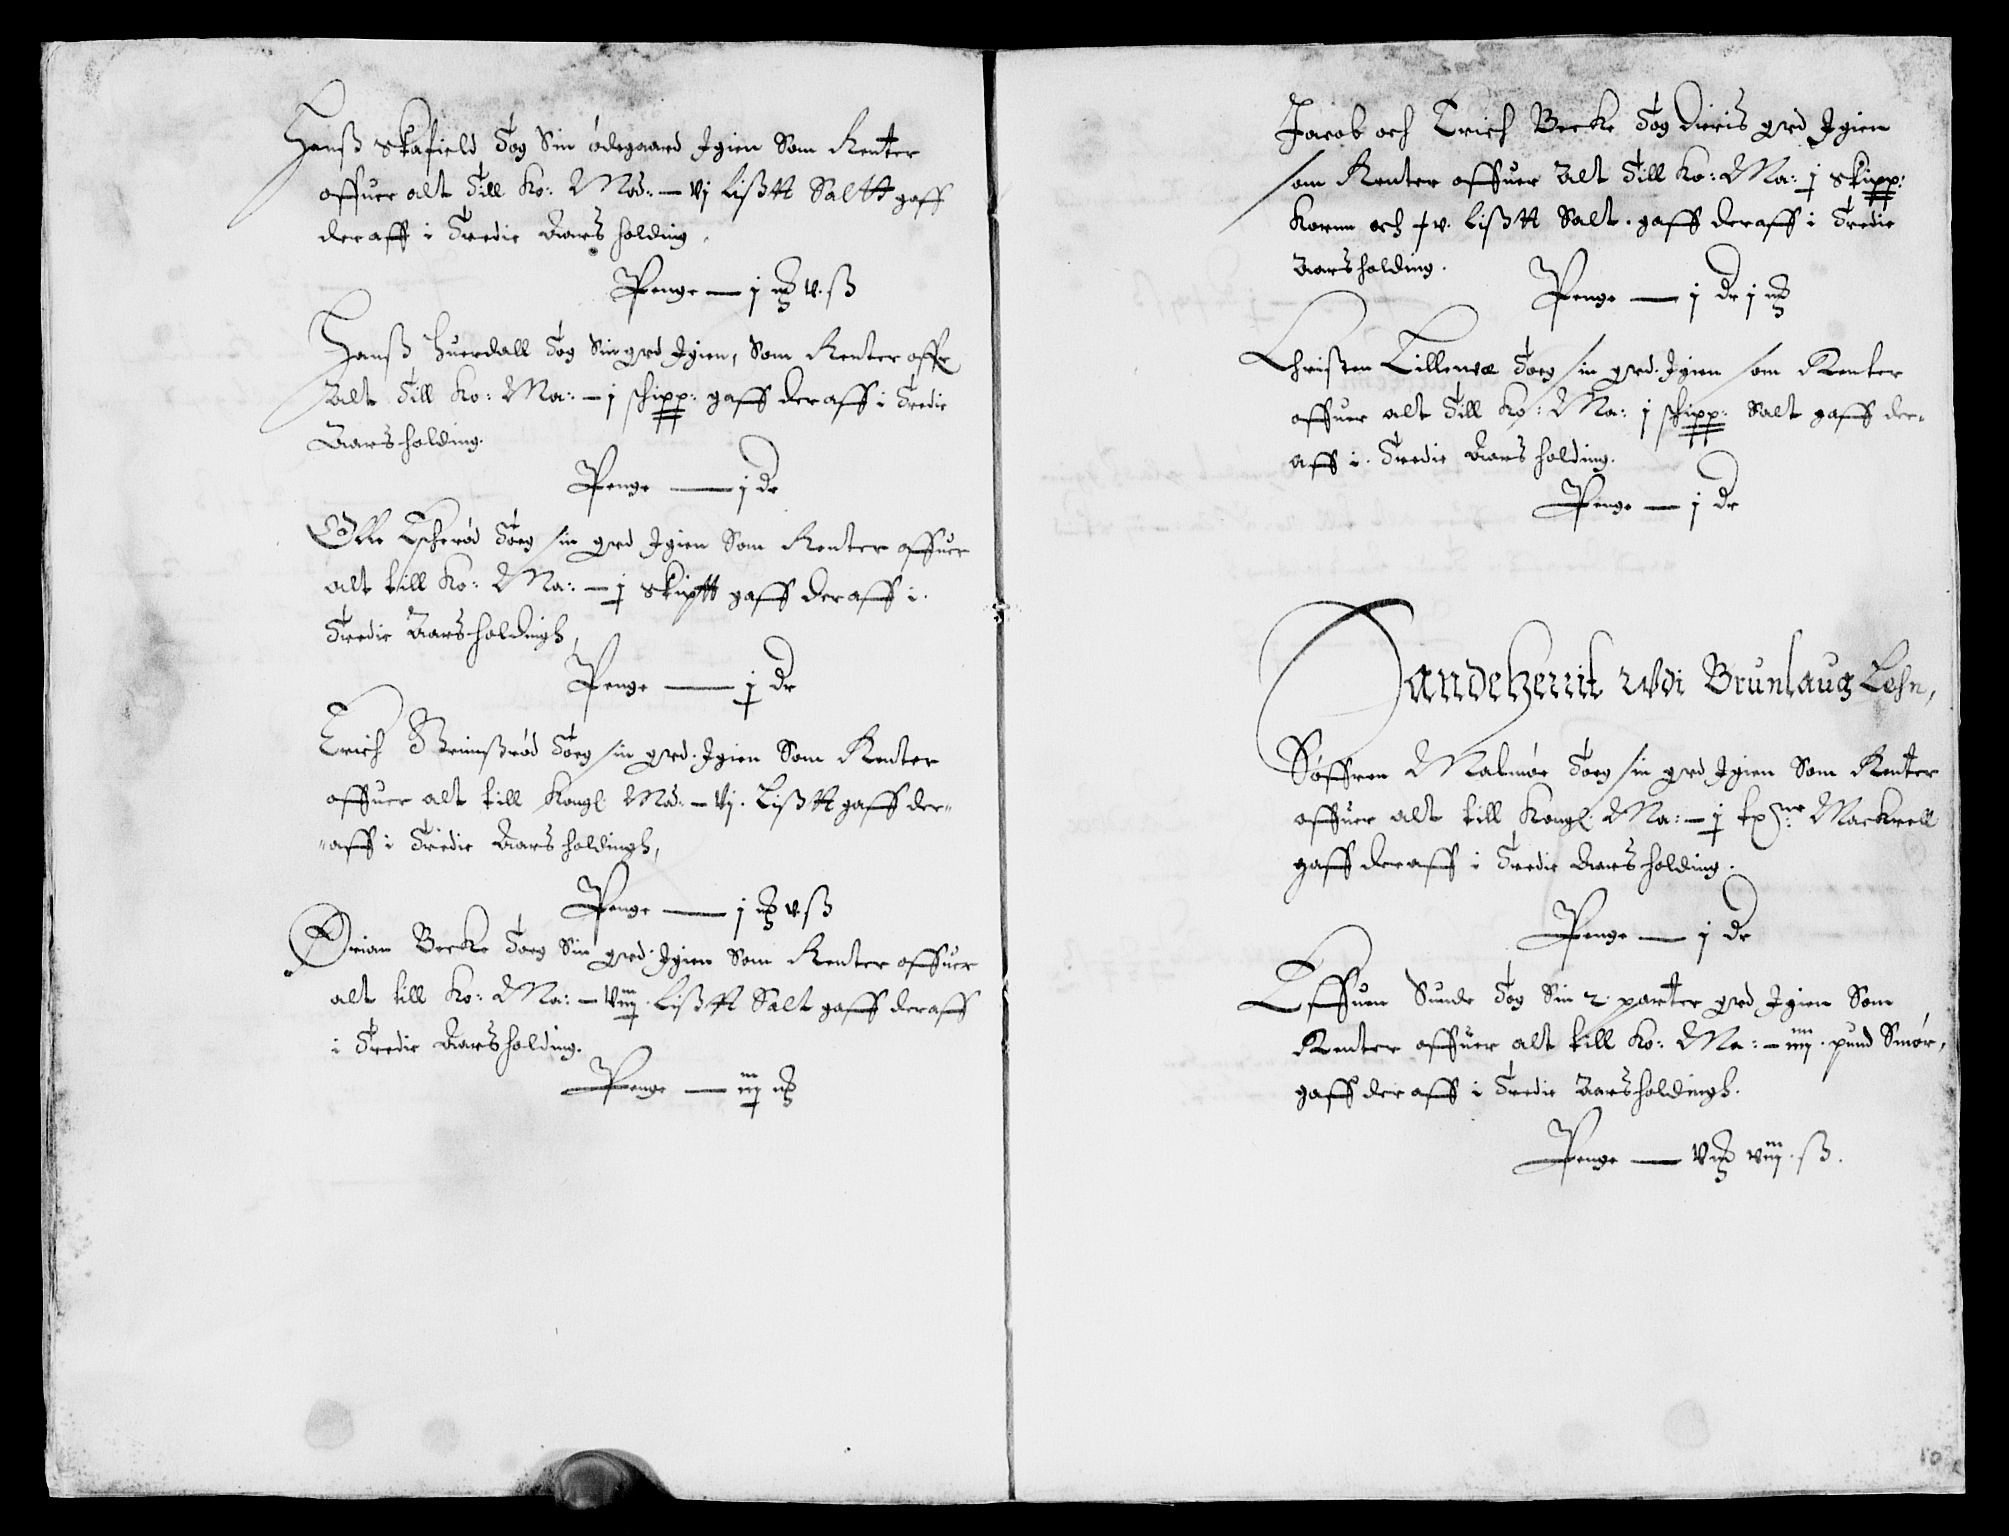 Hanß Skafield Tog Sin ødegaard Igien Som Renter
offuer alt Till Ko: Mad: — vj Lißtt Saltt gaff
deraff i Tredie Aars holding,
Penge — j mk v. ß
Hanß Huerdall Tog Sin grd Igien, Som Renter offr
Alt Till Ko: Ma: — j schipp: gaff deraff i Tredie
Aarsholding.
Penge — j dr
Olle Toeg sin grd Igien Som Renter offuer
alt till Ko: Ma: — j skiptt gaff deraff i.
Tredie Aarsholdingh,
Penge — j dr
Erich Grimßrød Toeg sin grd. Igien Som Renter
offuer alt till Kongl Mad: — vj. Lißtt gaff der=
=aff i Tredie Aars holdingh,
Penge — j mk v ß
Ørian Becke Toeg Sin grd. Igien Som Renter offuer
alt till Ko: Ma: — viij. Lißtt Salt gaff deraff
i Tredie Aarsholding.
Penge — iij mk
Jacob och Erich Becke Tog dieris grd Igien
som Renter offuer Alt Till Ko: Ma: j skipp:
Kornn och v. Lißtt Salt. gaff deraff i Tredie
Aarsholding.
Penge — j dr j mk
Christen Lilleuæ Toeg sin grd. Igien som Renter
offuer alt Till Ko: Ma: j schipp: Salt gaff der=
aff i. Tredie Aars holding.
Penge — j dr
Sandeherrit Udi Brunlaug Lehn,
Søffren Malmøe Toeg sin grd Igien Som Renter
offuer alt till Kongl: Ma: — j Mackrell
gaff deraff i Tredie Aarsholding.
Penge — j dr
Effuen Sunde Tog Sin 2 parter grd Igien Som
Renter offuer alt till Ko: Ma: — iiij. pund Smør,
gaff deraff i Tredie Aarsholdingh.
Penge — v mk viij. ß.
10